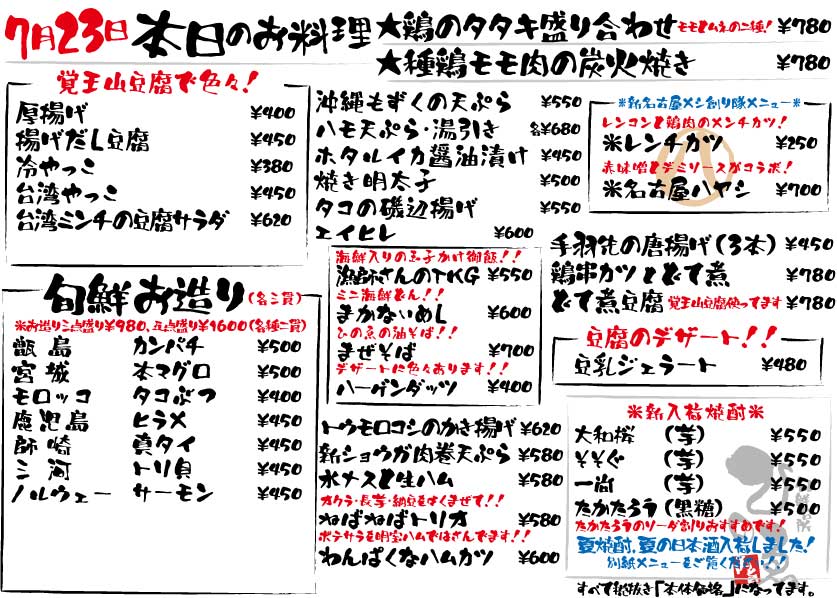 7月23日 本日のお料理
★鶏のタタキ盛り合わせ モモとムネの二種! ¥780
★種鶏モモ肉の炭火焼き ¥780
覚王山豆腐で色々!
厚揚げ ¥400
揚げだし豆腐 ¥450
冷やっこ ¥380
台湾やっこ ¥450
台湾ミンチの豆腐サラダ ¥620
旬鮮お造り(各三貫)
※お造り三点盛り¥980、五点盛り¥1600(各種二貫)
甑島 カンパチ ¥500
宮城 本マグロ ¥500
モロッコ タコぶつ ¥400
鹿児島 ヒラメ ¥450
師崎 真タイ ¥450
三河 トリ貝 ¥450
ノルウェー サーモン ¥450
沖縄もずくの天ぷら ¥550
ハモ天ぷら・湯引き 各¥680
ホタルイカ醤油漬け ¥450
焼き明太子 ¥500
タコの磯辺揚げ ¥550
エイヒレ ¥600
海鮮入りの玉子かけ御飯!!
漁師さんのTKG ¥550
ミニ海鮮どん!!
まかないめし ¥600
ひの魚の油そば!!
まぜそば ¥700
デザートに色々あります!!
ハーゲンダッツ ¥400
トウモロコシのかき揚げ ¥620
新ショウガ肉巻天ぷら ¥580
水ナスと生ハム ¥580
オクラ・長芋・納豆をよくまぜて!!
ねばねばトリオ ¥580
ポテサラを明宝ハムではさんでます!!
わんぱくなハムカツ ¥600
※新名古屋メシ創り隊メニュー※
レンコンと鶏肉のメンチカツ!
※レンチカツ ¥250
赤味噌とデミソースがコラボ!
※名古屋ハヤシ ¥700
手羽先の唐揚げ(3本) ¥450
鶏串カツとどて煮 ¥780
どて煮豆腐 覚王山豆腐使ってます ¥780
豆腐のデザート!!
豆乳ジェラート ¥480
※新入荷焼酎※
大和桜 (芋) ¥550
そそぐ (芋) ¥550
一尚 (芋) ¥550
たかたろう(黒糖) ¥500
たかたろうのソーダ割りおすすめです!
夏焼酎、夏の日本酒入荷しました!
別紙メニューをご覧ください!!
すべて税抜き「本体価格」になってます。